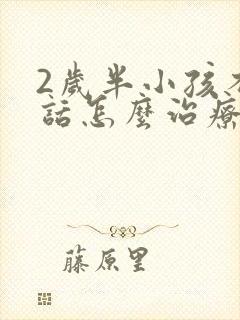 2歲半小孩不
話怎麼治療
藤原里